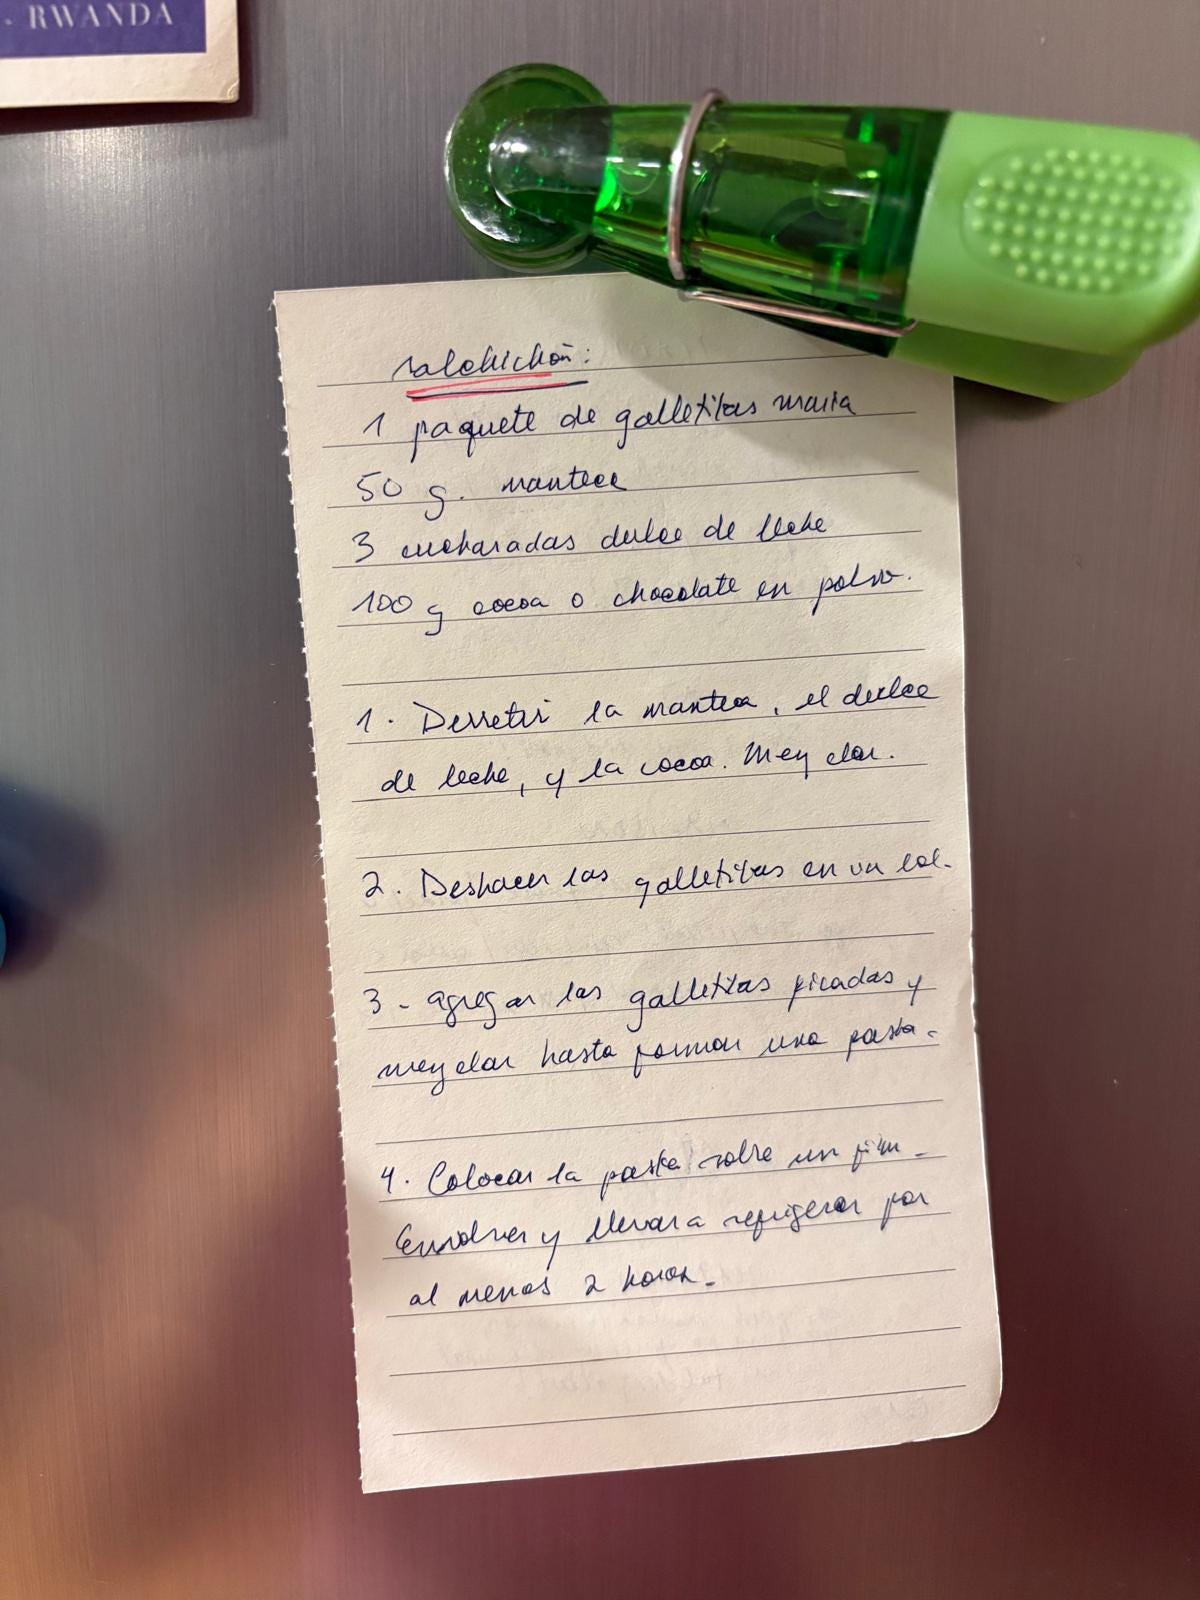 - RWANDA
salchichón:
1 paquete de galletitas maria
50 g. manteca
3 cucharadas dulce de leche
100 g cocoa o chocolate en polvo.
1. Derretir la manteca, el dulce
de leche, y la cocoa. Mezclar.
2. Deshacer las galletitas en un bol.
3 - agregar las galletitas picadas y
mezclar hasta formar una pasta.
4. Colocar la pasta sobre un film.
Envolver y llevar a refrigerar por
al menos 2 horas.